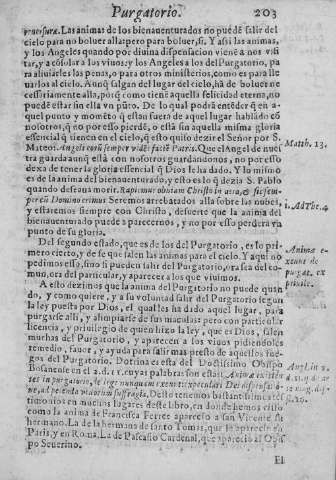 Purgatorio. 203
Las animas de los bienauenturados no puedē salir del
cielo para no boluer alla: pero para boluer, si. Y assi las animas,
y los Angeles quando por diuina dispensacion vienē a nos visi
tar, y a cōsolar a los viuos, y los Angeles a los del Purgatorio, pa
ra aliuiarles las penas, o para otros ministerios, como es para lle
uarlos al cielo. Aunq̄ salgan del lugar del cielo, hā de boluer ne
cessariamente alla, porq̄ como tienē aquella felicidad eterna, no
puedē estar sin ella vn pūto. De lo qual podrà entēder q̄ en a-
quel punto y momēto q̄ estan fuera de aquel lugar hablādo cō
nosotros, q̄ no por esso pierdē, o estā sin aquella misma gloria
essencial q̄ tienen en el cielo, q̄ esto quiso dezir el Señor por S.
Mateo. Angeli eorū semper vidēt faciē Patris. Que el Angel de nues
tra guarda aunq̄ estâ con nosotros guardandonos, no por esso
dexa de tener la gloria essencial q̄ Dios le ha dado. Y lo mismo
es de la anima del bienauenturado, y esto es lo q̄ dezia S. Pablo
quando desseaua morir. Rapiemur obuiam Christo in aera, & sic sem-
per cū Domino erimus. Seremos arrebatados alla sobre las nubes,
y estaremos siempre con Christo, de suerte que la anima del
bienauenturado puede aparecernos, y no por esso perderà vn
punto de su gloria.
Matth. 13.
1. Ad Thes. 4
Del segundo estado, que es de los del Purgatorio, es lo pri-
mero cierto, y de fe que salen las animas para el cielo. Y aqui no
pedimos esso, sino si pueden salir del Purgatorio, ora sea del co-
mun, ora del particular, y aparecer a los que viuimos.
Animæ
purgat. ex
A esto dezimos que la anima del Purgatorio no puede quan
do, y como quiere, y a su voluntad salir del Purgatorio segun
la ley puesta por Dios, el qual les ha dado aquel lugar, para
purgarse alli, y alimpiarse de sus maculas: pero con particular
licencia, y priuilegio de quien hizo la ley, que es Dios, salen
muchas del Purgatorio, y aparecen a los viuos pidiendoles
remedio, fauor, y ayuda para salir mas presto de aquellos fue-
gos del Purgatorio. Dotrina es esta del Doctissimo Obispo
cuyas palabras son estas:
in purgatorio, de lege nunquam
suffragia. Desto tenemos bastantissimo tes
timonio en muchos lugares deste libro, en donde hemos visto
como la anima de Francisca Ferrer aparecio a san Vicente su
hermano. La de la hermana de santo Tomas, que le aparecio en
Paris, y en Roma. La de Pascasio Cardenal, que aparecio al Obis
po
El